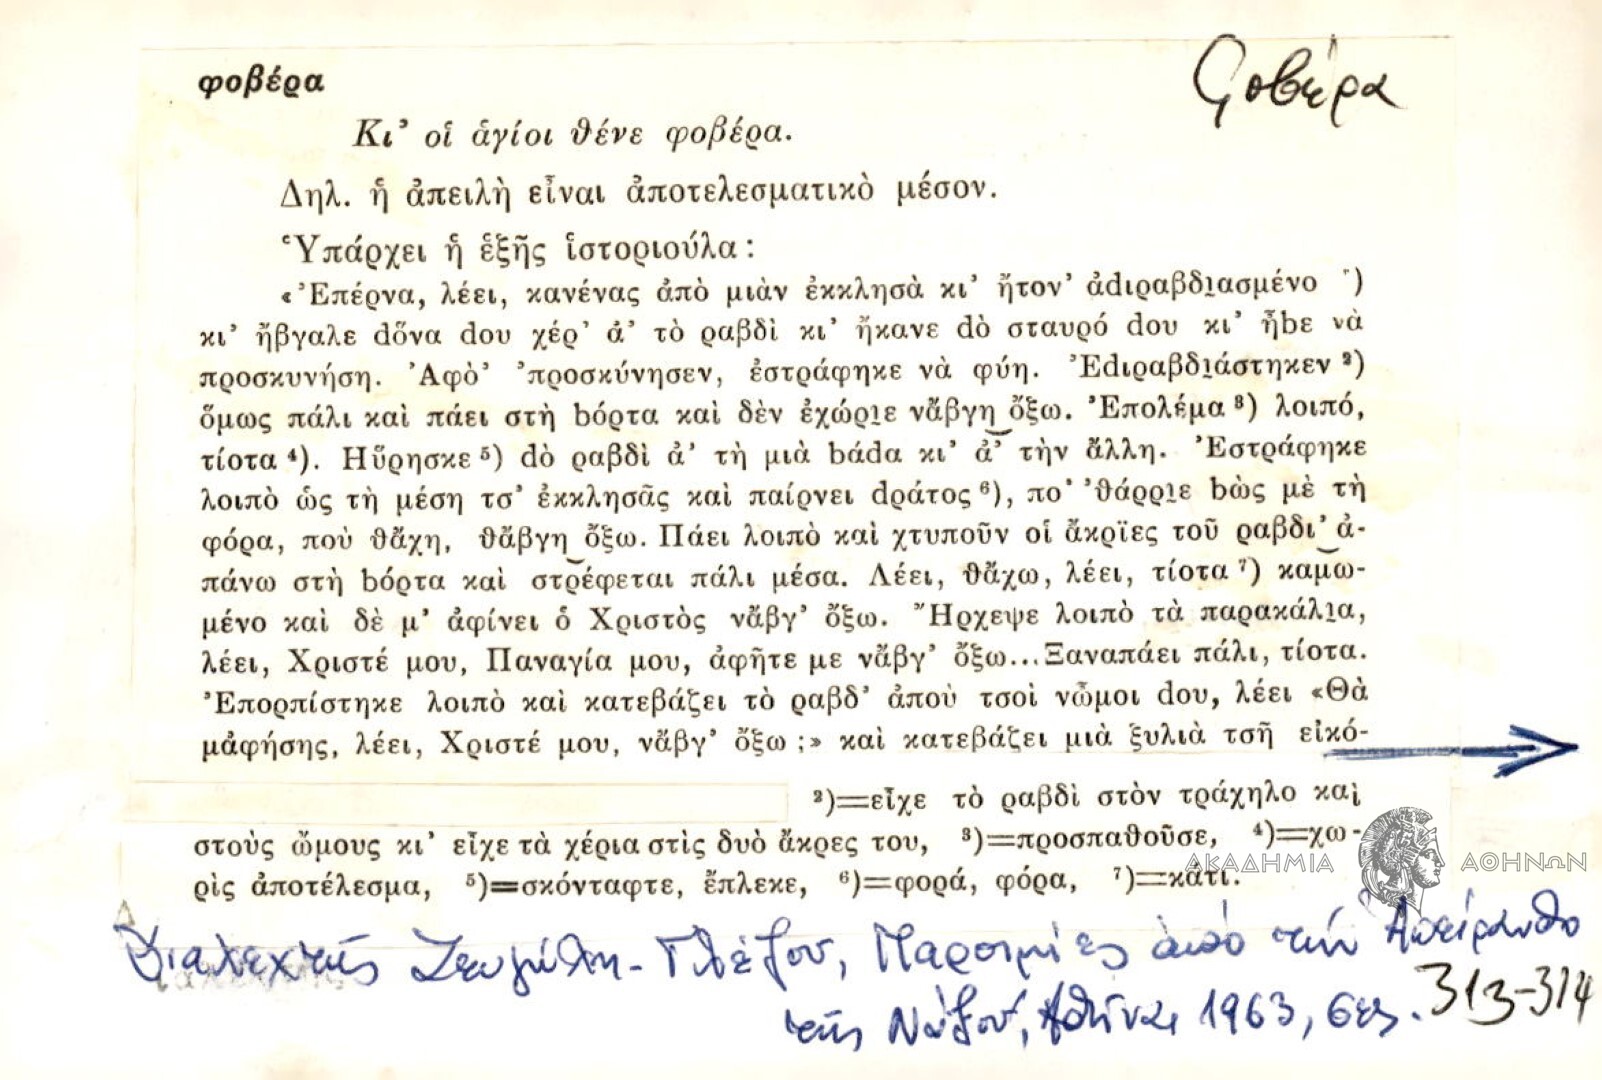 φοβέρα
Φοβέρα
Κι' οἱ ἁγίοι θένε φοβέρα.
Δηλ. ἡ ἀπειλὴ εἶναι ἀποτελεσματικὸ μέσον.
Ὑπάρχει ἡ ἑξῆς ἱστοριούλα:
«Ἐπέρνα, λέει, κανένας ἀπὸ μιὰν ἐκκλησὰ κι' ἤτον' ἀdιραβδι̯ασμένο ¹)
κι' ἤβγαλε dὅνα dου χέρ' ἀ' τὸ ραβδὶ κι' ἤκανε dὸ σταυρό dου κι' ἦbε νὰ
προσκυνήση. Ἀφὸ' 'προσκύνησεν, ἐστράφηκε νὰ φύη. Ἐdιραβδι̯άστηκεν ²)
ὅμως πάλι καὶ πάει στὴ bόρτα καὶ δὲν ἐχώρι̯ε νἄβγη‿ὄξω. Ἐπολέμα ³) λοιπό,
τίοτα ⁴). Ηὕρησκε ⁵) dὸ ραβδὶ ἀ' τὴ μιὰ bάdα κι' ἀ' τὴν ἄλλη. Ἐστράφηκε
λοιπὸ ὡς τὴ μέση τσ' ἐκκλησᾶς καὶ παίρνει dράτος ⁶), πο' 'θάρρι̯ε bὼς μὲ τὴ
φόρα, ποὺ θἄχη, θἄβγη‿ὄξω. Πάει λοιπὸ καὶ χτυποῦν οἱ ἄκρϊες τοῦ ραβδι'‿ἀ-
πάνω στὴ bόρτα καὶ στρέφεται πάλι μέσα. Λέει, θἄχω, λέει, τίοτα ⁷) καμω-
μένο καὶ δὲ μ' ἀφίνει ὁ Χριστὸς νἄβγ' ὄξω. Ἤρχεψε λοιπὸ τὰ παρακάλι̯α,
λέει, Χριστέ μου, Παναγία μου, ἀφῆτε με νἄβγ' ὄξω... Ξαναπάει πάλι, τίοτα.
Ἐπορπίστηκε λοιπὸ καὶ κατεβάζει τὸ ραβδ' ἀποὺ τσοὶ νὤμοι dου, λέει «Θὰ
μἀφήσης, λέει, Χριστέ μου, νἄβγ' ὄξω;» καὶ κατεβάζει μιὰ ξυλιὰ τσῆ εἰκό-
²)=εἶχε τὸ ραβδὶ στὸν τράχηλο καὶ
στοὺς ὤμους κι' εἶχε τὰ χέρια στὶς δυὸ ἄκρες του, ³)=προσπαθοῦσε, ⁴)=χω-
ρὶς ἀποτέλεσμα, ⁵)=σκόνταφτε, ἔπλεκε, ⁶)=φορά, φόρα, ⁷)=κάτι.
ΑΚΑΔΗΜΙΑ ΑΘΗΝΩΝ
Διαλεχτῆς Ζευγώλη-Γλέζου, Παροιμίες ἀπὸ τὴν Ἀπείρανθο
τῆς Νάξου, Ἀθῆναι 1963, σελ. 313-314